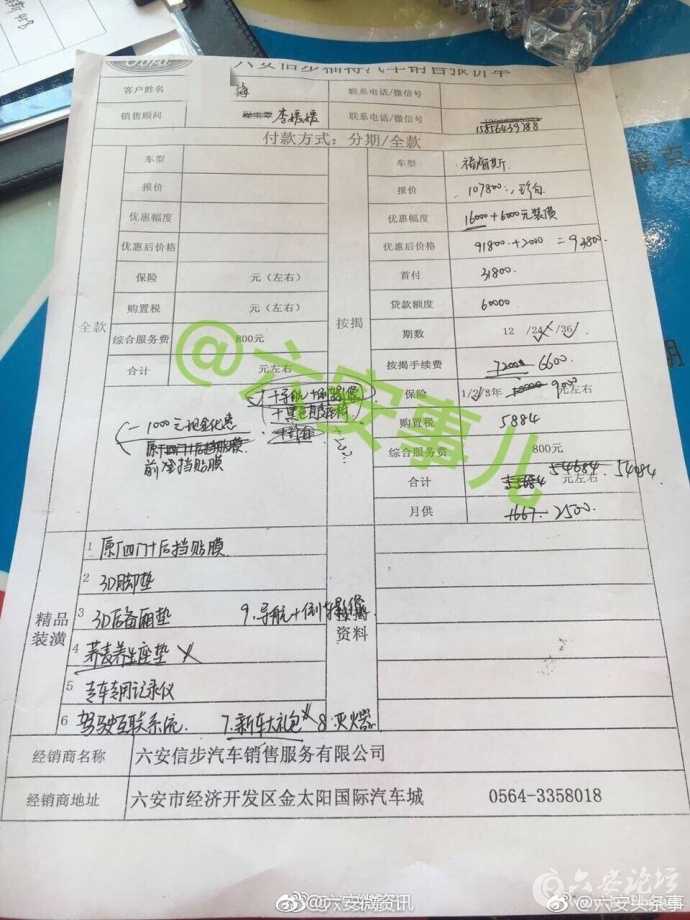 六安信步福特汽车销售报价单
客户姓名 海 联系电话/微信号
销售顾问 李媛媛 联系电话/微信号 15856439788
付款方式：分期/全款
全款
车型
报价
优惠幅度
优惠后价格
保险 元（左右）
购置税 元（左右）
综合服务费 800元
合计 元左右
按揭
车型 福睿斯
报价 107800
优惠幅度 16000+6000元装潢
优惠后价格 91800+2000 =93800
首付 31800
贷款额度 60000
期数 12 /24 /36
按揭手续费 7200 6600
保险 1/2/3年 10000 9000 元左右
购置税 5884
综合服务费 800元
合计 55684 54684 元左右 54084
月供 1667 2500
1000元现金优惠
原厂四门+后挡贴膜
前挡贴膜
精品装潢
1 原厂四门+后挡贴膜
2 3D脚垫
3 3D后备厢垫 9.导航+倒车影像
4 荞麦养生座垫
5 专车专用记录仪
6 驾驶互联系统 7.新车大礼包 8.灭火器
资料
经销商名称 六安信步汽车销售服务有限公司
经销商地址 六安市经济开发区金太阳国际汽车城 0564-3358018
@六安事儿
@六安微资讯
六安论坛
@六安头条事